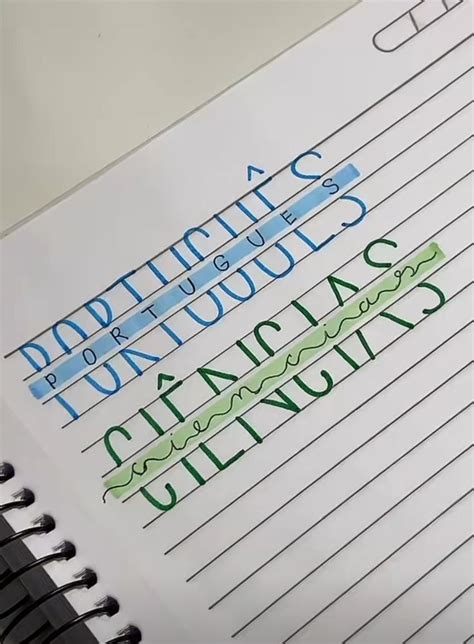 PORTUGUÊS
PORTUGUES
CIÊNCIAS
ciências